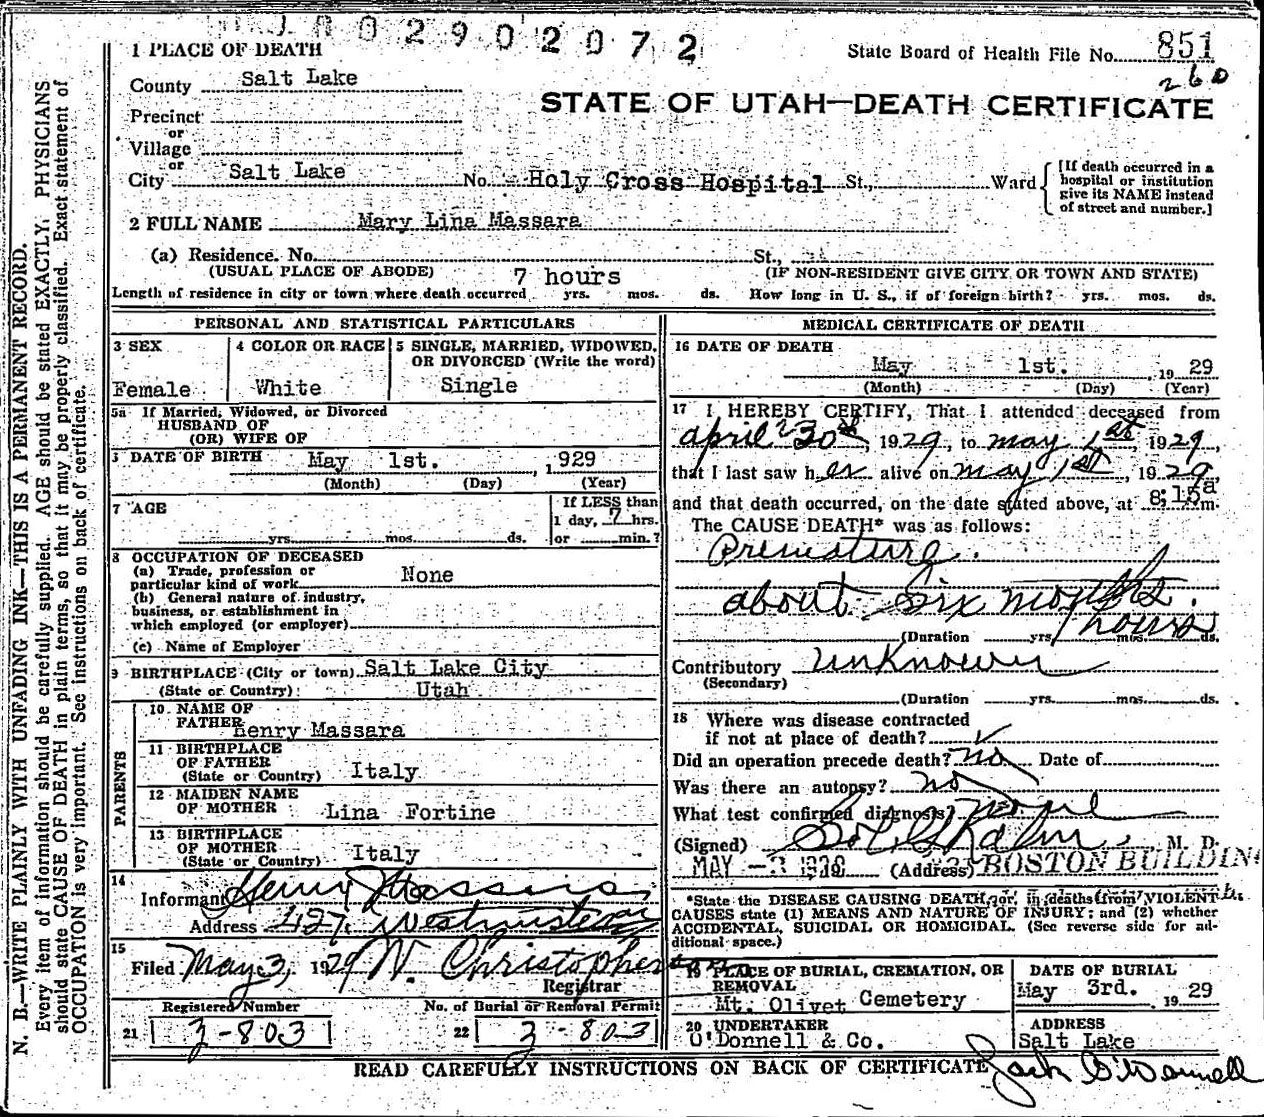 0 0 2 9 0 2 0 7 2
1 PLACE OF DEATH
State Board of Health File No. 851
260
County Salt Lake
STATE OF UTAH—DEATH CERTIFICATE
Precinct
or
Village
or
City Salt Lake No. - Holy Cross Hospital St., Ward
[If death occurred in a hospital or institution give its NAME instead of street and number.]
2 FULL NAME Mary Lina Massara
(a) Residence. No. St.,
(USUAL PLACE OF ABODE) (IF NON-RESIDENT GIVE CITY OR TOWN AND STATE)
7 hours
Length of residence in city or town where death occurred yrs. mos. ds. How long in U. S., if of foreign birth? yrs. mos. ds.
PERSONAL AND STATISTICAL PARTICULARS
3 SEX
Female
4 COLOR OR RACE
White
5 SINGLE, MARRIED, WIDOWED, OR DIVORCED (Write the word)
Single
5a If Married, Widowed, or Divorced
HUSBAND OF
(OR) WIFE OF
DATE OF BIRTH May 1st. , 1929
(Month) (Day) (Year)
7 AGE
yrs. mos. ds.
If LESS than
1 day, 7 hrs.
or min.?
8 OCCUPATION OF DECEASED
(a) Trade, profession or
particular kind of work None
(b) General nature of industry,
business, or establishment in
which employed (or employer)
(c) Name of Employer
9 BIRTHPLACE (City or town) Salt Lake City
(State or Country) Utah
PARENTS
10 NAME OF
FATHER Henry Massara
11 BIRTHPLACE
OF FATHER
(State or Country) Italy
12 MAIDEN NAME
OF MOTHER Lina Fortine
13 BIRTHPLACE
OF MOTHER
(State or Country) Italy
14
Informant Henry Massara
Address 427 Westminster
15
Filed May 3, 1929 W. Christopherson
Registrar
Registered Number No. of Burial or Removal Permit
21 3-803 22 3-803
MEDICAL CERTIFICATE OF DEATH
16 DATE OF DEATH
May 1st. , 19 29
(Month) (Day) (Year)
17 I HEREBY CERTIFY, That I attended deceased from
April 30th, 1929, to May 1st 1929,
that I last saw her alive on May 1st, 1929,
and that death occurred, on the date stated above, at 8:15a m.
The CAUSE DEATH* was as follows:
Premature.
about six months.
hours
(Duration yrs. mos. ds.
Contributory Unknown
(Secondary)
(Duration yrs. mos. ds.
18 Where was disease contracted
if not at place of death?
Did an operation precede death? no Date of
Was there an autopsy? no
What test confirmed diagnosis? none
(Signed) Sol. G. Kahn M. D.
MAY - (Address) BOSTON BUILDING
*State the DISEASE CAUSING DEATH, or, in deaths from VIOLENT
CAUSES state (1) MEANS AND NATURE OF INJURY; and (2) whether
ACCIDENTAL, SUICIDAL OR HOMICIDAL. (See reverse side for ad-
ditional space.)
19 PLACE OF BURIAL, CREMATION, OR
REMOVAL
Mt. Olivet Cemetery
DATE OF BURIAL
May 3rd. 19 29
20 UNDERTAKER
O'Donnell & Co.
ADDRESS
Salt Lake
READ CAREFULLY INSTRUCTIONS ON BACK OF CERTIFICATE
Jack O'Donnell
N. B.—WRITE PLAINLY WITH UNFADING INK—THIS IS A PERMANENT RECORD.
Every item of information should be carefully supplied. AGE should be stated EXACTLY. PHYSICIANS
should state CAUSE OF DEATH in plain terms, so that it may be properly classified. Exact statement of
OCCUPATION is very important. See instructions on back of certificate.